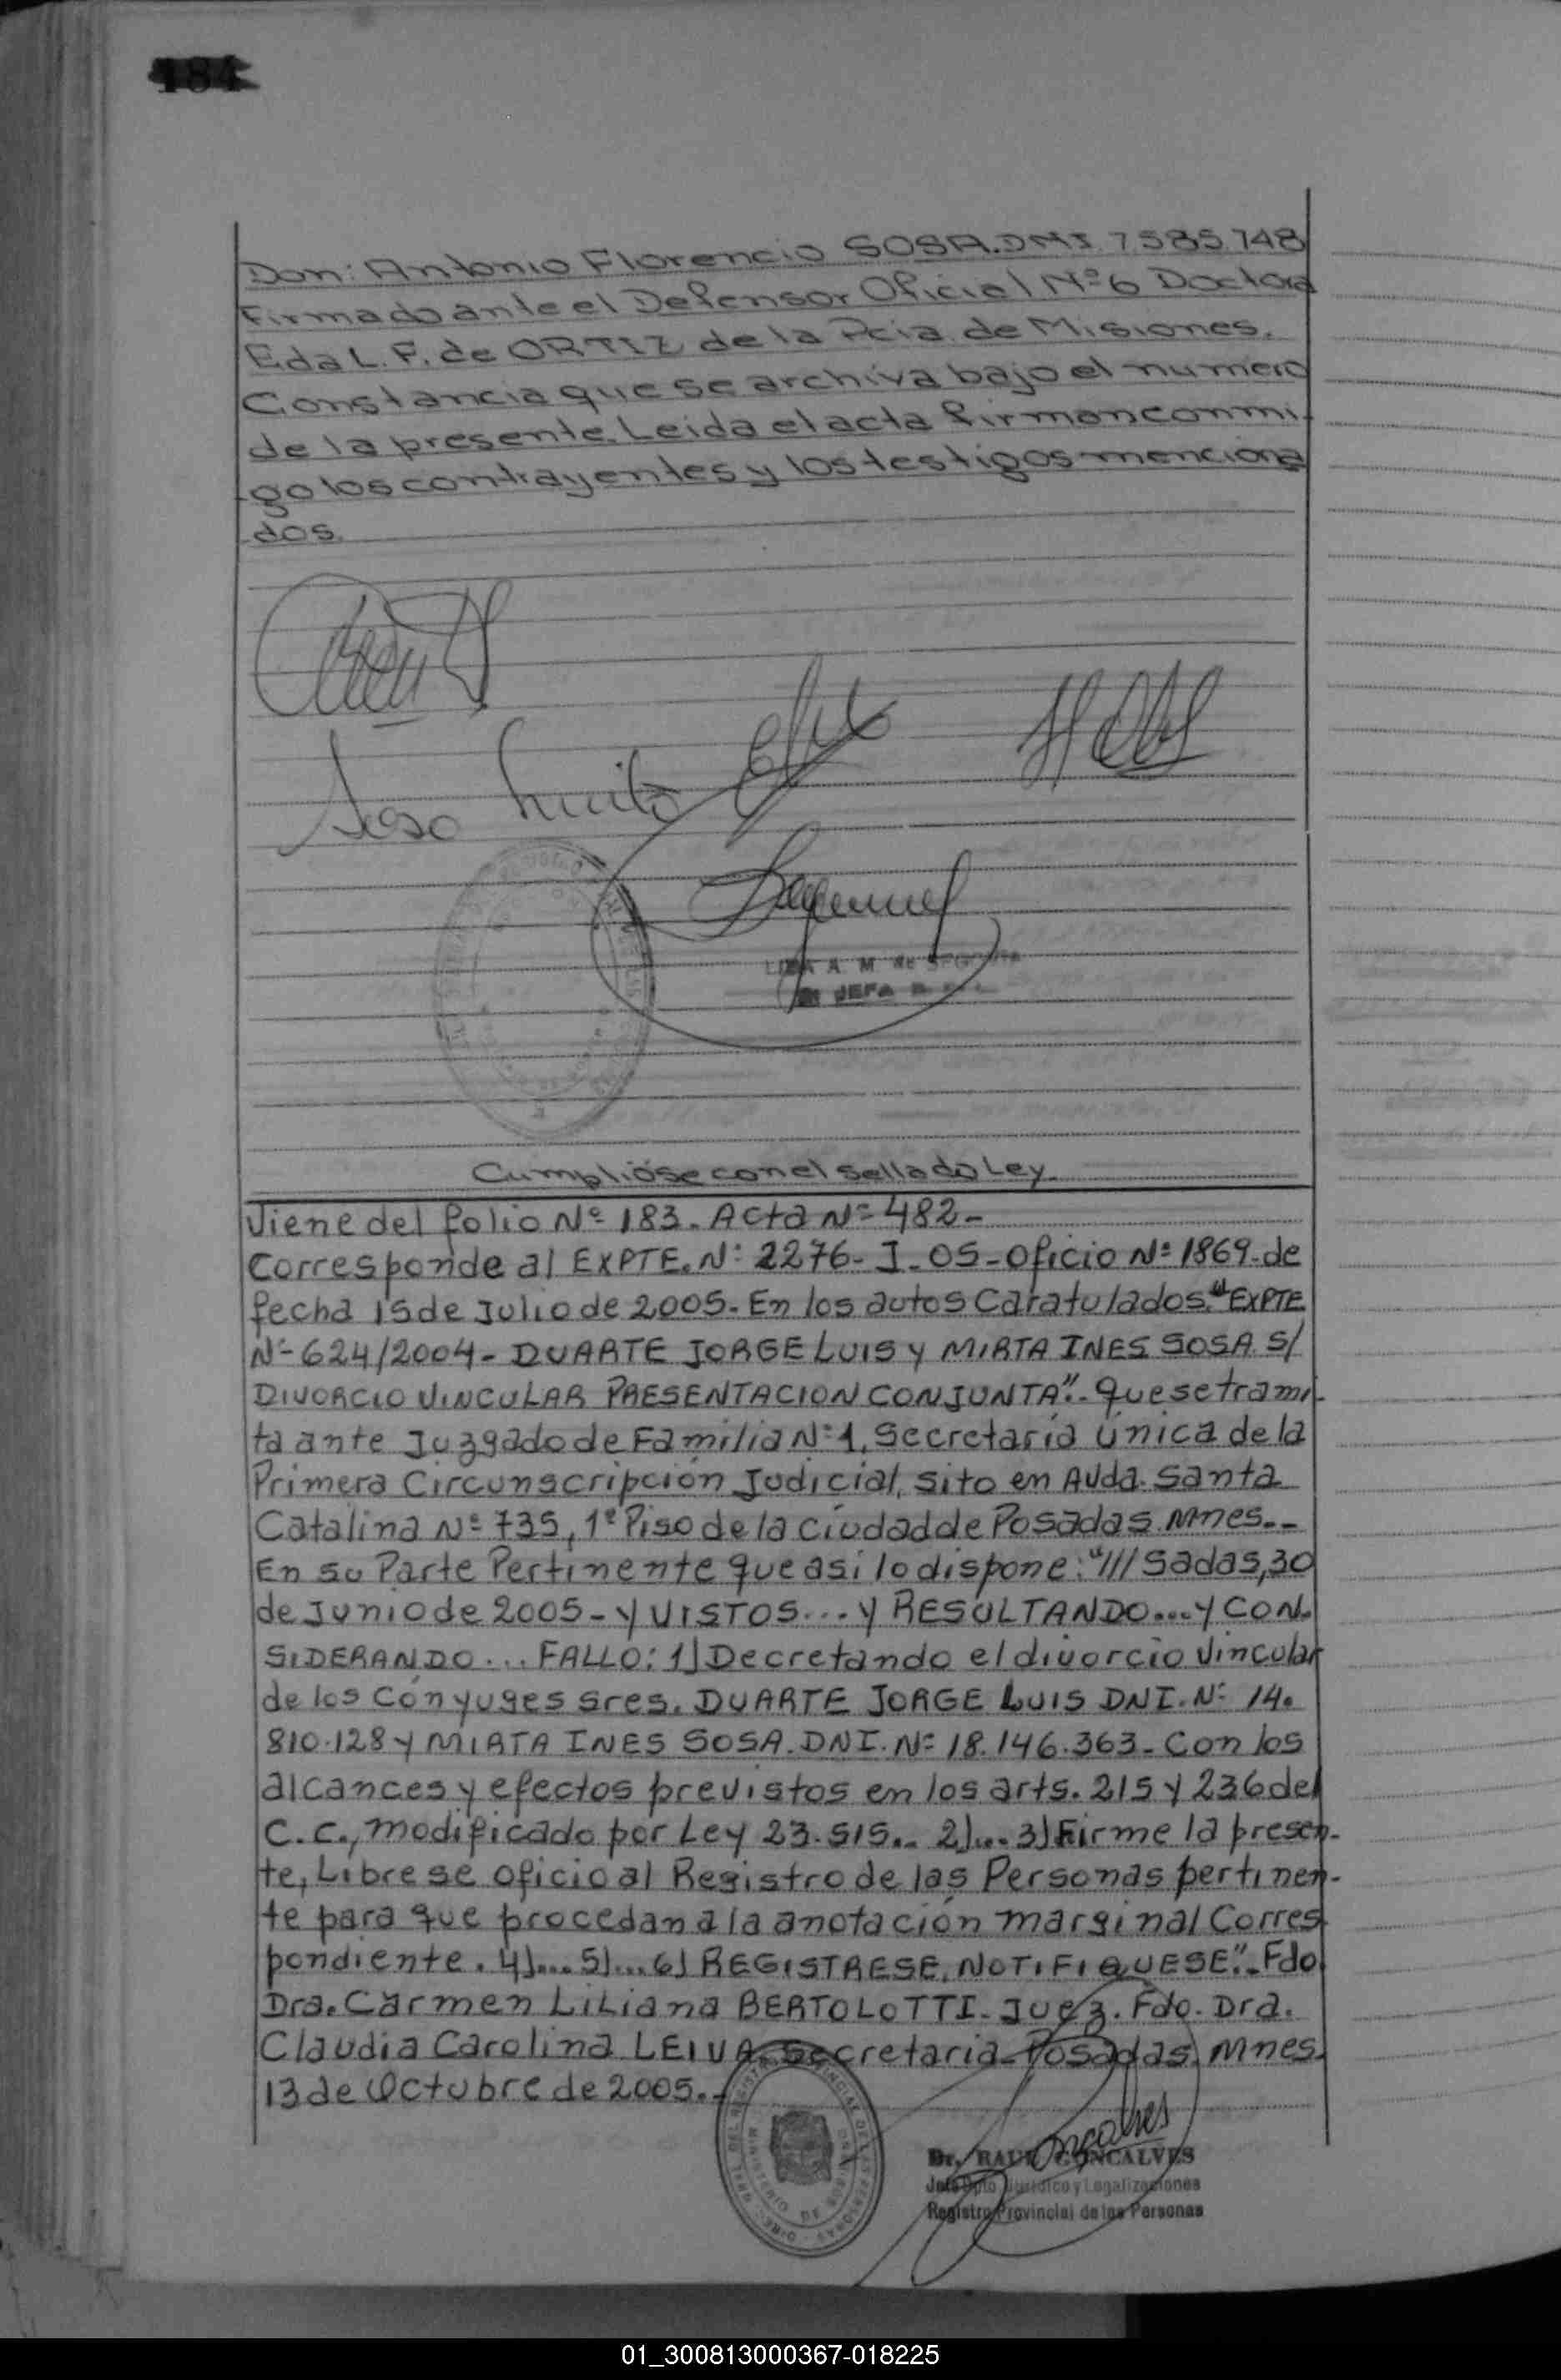 184
Don: Antonio Florencio SOSA. DNI 7.585.748
Firmado ante el Defensor Oficial Nº 6 Doctora
Eda L. F. de ORTIZ de la Pcia. de Misiones.
Constancia que se archiva bajo el numero
de la presente. Leida el acta firman conmi-
go los contrayentes y los testigos menciona
dos.
LIDIA A. M. de
JEFA
Cumplióse con el sellado Ley.
Viene del folio Nº 183. Acta Nº 482-
Corresponde al EXPTE. Nº 2276- I- 05- Oficio Nº 1869- de
fecha 15 de Julio de 2005- En los autos Caratulados: "EXPTE
Nº 624/2004- DUARTE JORGE LUIS y MIRTA INES SOSA S/
DIVORCIO VINCULAR PRESENTACION CONJUNTA".- que se trami-
ta ante Juzgado de Familia Nº 1, Secretaría única de la
Primera Circunscripción Judicial, sito en Avda. Santa
Catalina Nº 735, 1º Piso de la ciudad de Posadas. Mnes.-
En su Parte Pertinente que así lo dispone: "///Sadas, 30
de Junio de 2005- Y VISTOS... Y RESULTANDO... Y CON-
SIDERANDO... FALLO: 1) Decretando el divorcio Vincular
de los Cónyuges Sres. DUARTE JORGE LUIS DNI. Nº 14.
810.128 y MIRTA INES SOSA. DNI. Nº 18.146.363- Con los
alcances y efectos previstos en los arts. 215 y 236 del
C.C., modificado por Ley 23.515.. 2)... 3) Firme la presen-
te, Librese oficio al Registro de las Personas pertinen-
te para que procedan a la anotación marginal Corres
pondiente. 4)... 5)... 6) REGISTRESE, NOTIFIQUESE".- Fdo
Dra. Carmen Liliana BERTOLOTTI- Juez. Fdo. Dra.
Claudia Carolina LEIVA. Secretaria- Posadas. Mnes.
13 de Octubre de 2005.-
Dr. RAUL GONCALVES
Jefe Dpto Jurídico y Legalizaciones
Registro Provincial de las Personas
01_300813000367-018225